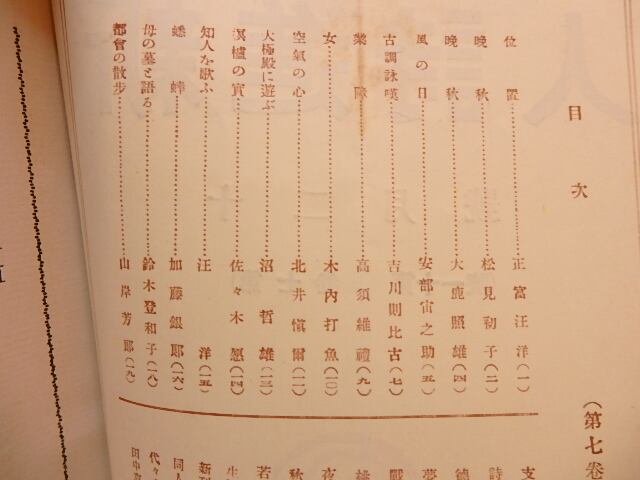 目次
(第七卷
位置……正富汪洋(一)
晩秋……松見初子(二)
晩秋……大鹿照雄(四)
風の日……安部宙之助(五)
古調詠嘆……吉川則比古(七)
業障……高須維禮(九)
女……木內打魚(一〇)
空氣の心……北井愼爾(一一)
大極殿に遊ぶ……沼哲雄(一三)
瞑櫨の實……佐々木愿(一四)
知人を歌ふ……汪洋(一五)
蟋蟀……加藤銀郞(一六)
母の墓と語る……鈴木登和子(一八)
都會の散步……山岸芳郞(一九)
支
詩
德
夢
戰
雄
夜
秋
若
生
新刊
同人
代々
田中